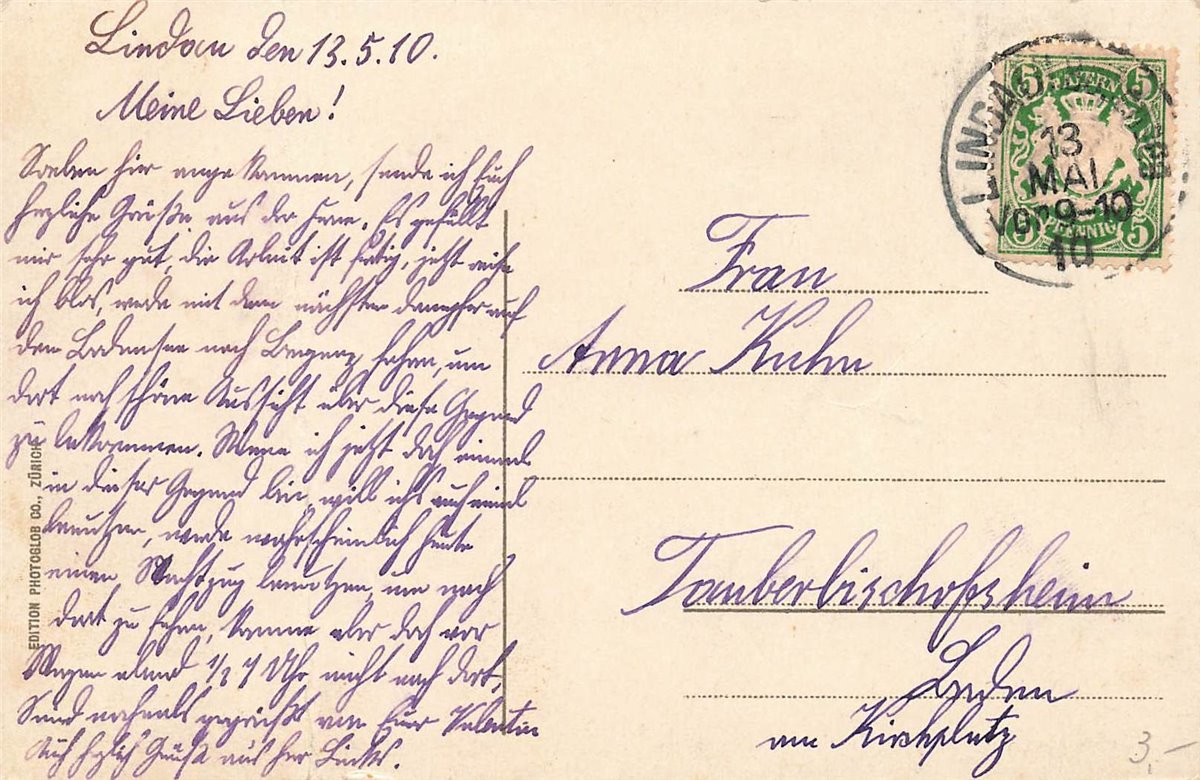 Lindau den 13.5.10.
Meine Lieben!
Soeben hier angekommen, sende ich Euch
herzliche Grüße aus der Ferne. Es gefällt
mir sehr gut, die Arbeit ist fertig, jetzt reise
ich blos, werde mit dem nächsten Dampfer auf
dem Bodensee nach Bregenz fahren, um
dort noch schöne Aussicht über diese Gegend
zu bekommen. Wenn ich jetzt doch einmal
in dieser Gegend bin, will ichs auch einmal
benutzen, werde wahrscheinlich heute
einen Nachtzug benutzen, um nach
dort zu fahren, komme aber doch vor
Morgen abend 1/2 7 Uhr nicht nach dort,
Seid nochmals gegrüßt von Euer Valentin
Auch Grüße aus
EDITION PHOTOGLOB CO., ZÜRICH
LINDAU
13
MAI
Vor 9-10
10
5 BAYERN 5
5 PFENNIG 5
Frau
Anna Kuhn
Tauberbischofsheim
Baden
am Kirchplatz
3,-